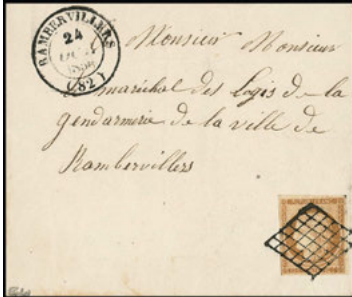 RAMBERVILLERS
24
(82)
Monsieur Monsieur
maréchal des logis de la
gendarmerie de la ville de
Rambervillers